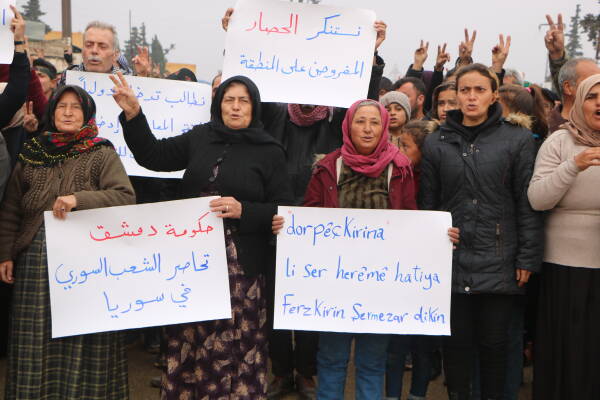 نستنكر الحصار
المفروضين على المنطقة
نطالب
حكومة دمشق
تحاصر الشعب السوري
في سوريا
"dorpêçKirina"
li ser herêmê hatiya
FerzKirin Şermezar dikin